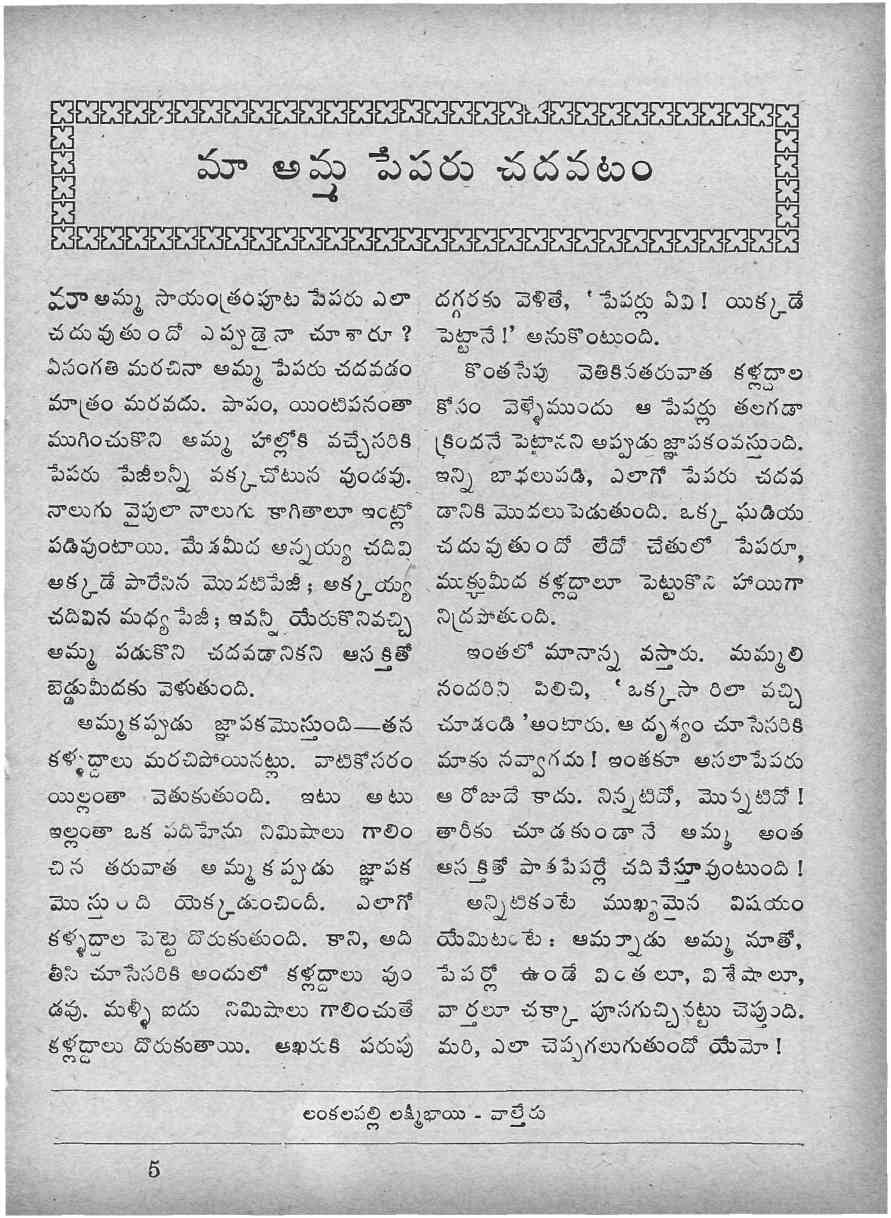 మా అమ్మ పేపరు చదవటం
మా అమ్మ సాయంత్రంపూట పేపరు ఎలా
చదువుతుందో ఎప్పుడైనా చూశారూ ?
ఏసంగతి మరచినా అమ్మ పేపరు చదవడం
మాత్రం మరవదు. పాపం, యింటిపనంతా
ముగించుకొని అమ్మ హాల్లోకి వచ్చేసరికి
పేపరు పేజీలన్నీ వక్కచోటున వుండవు.
నాలుగు వైపులా నాలుగు కాగితాలూ ఇంట్లో
పడివుంటాయి. మేడమీద అన్నయ్య చదివి
అక్కడే పారేసిన మొదటిపేజీ ; అక్కయ్య
చదివిన మధ్య పేజీ ; ఇవన్నీ యేరుకొనివచ్చి
అమ్మ పడుకొని చదవడానికని ఆసక్తితో
బెడ్డుమీదకు వెళుతుంది.
అమ్మకప్పుడు జ్ఞాపకమొస్తుంది—తన
కళ్ళద్దాలు మరచిపోయినట్లు. వాటికోసరం
యిల్లంతా వెతుకుతుంది. ఇటు అటు
ఇల్లంతా ఒక పదిహేను నిమిషాలు గాలిం
చిన తరువాత అమ్మకప్పుడు జ్ఞాపక
మొస్తుంది యెక్కడుంచిందీ. ఎలాగో
కళ్ళద్దాల పెట్టె దొరుకుతుంది. కాని, అది
తీసి చూసేసరికి అందులో కళ్లద్దాలు వుం
డవు. మళ్ళీ ఐదు నిమిషాలు గాలించుతే
కళ్లద్దాలు దొరుకుతాయి. ఆఖరుకి పరుపు
దగ్గరకు వెళితే, ‘ పేపర్లు ఏవి ! యిక్కడే
పెట్టానే !’ అనుకొంటుంది.
కొంతసేపు వెతికినతరువాత కళ్లద్దాల
కోసం వెళ్ళేముందు ఆ పేపర్లు తలగడా
క్రిందనే పెట్టానని అప్పుడు జ్ఞాపకంవస్తుంది.
ఇన్ని బాధలుపడి, ఎలాగో పేపరు చదవ
డానికి మొదలుపెడుతుంది. ఒక్క ఘడియ
చదువుతుందో లేదో చేతులో పేపరూ,
ముక్కుమీద కళ్లద్దాలూ పెట్టుకొని హాయిగా
నిద్రపోతుంది.
ఇంతలో మానాన్న వస్తారు. మమ్మలి
నందరిని పిలిచి, ‘ ఒక్కసారిలా వచ్చి
చూడండి ’అంటారు. ఆ దృశ్యం చూసేసరికి
మాకు నవ్వాగదు ! ఇంతకూ అసలాపేపరు
ఆ రోజుదే కాదు. నిన్నటిదో, మొన్నటిదో !
తారీకు చూడకుండానే అమ్మ అంత
ఆసక్తితో పాతపేపర్లే చదివేస్తూవుంటుంది !
అన్నిటికంటే ముఖ్యమైన విషయం
యేమిటంటే : ఆమర్నాడు అమ్మ మాతో,
పేపర్లో ఉండే వింతలూ, విశేషాలూ,
వార్తలూ చక్కా పూసగుచ్చినట్టు చెప్తుంది.
మరి, ఎలా చెప్పగలుగుతుందో యేమో !
లంకలపల్లి లక్ష్మీభాయి - వాల్తేరు
5